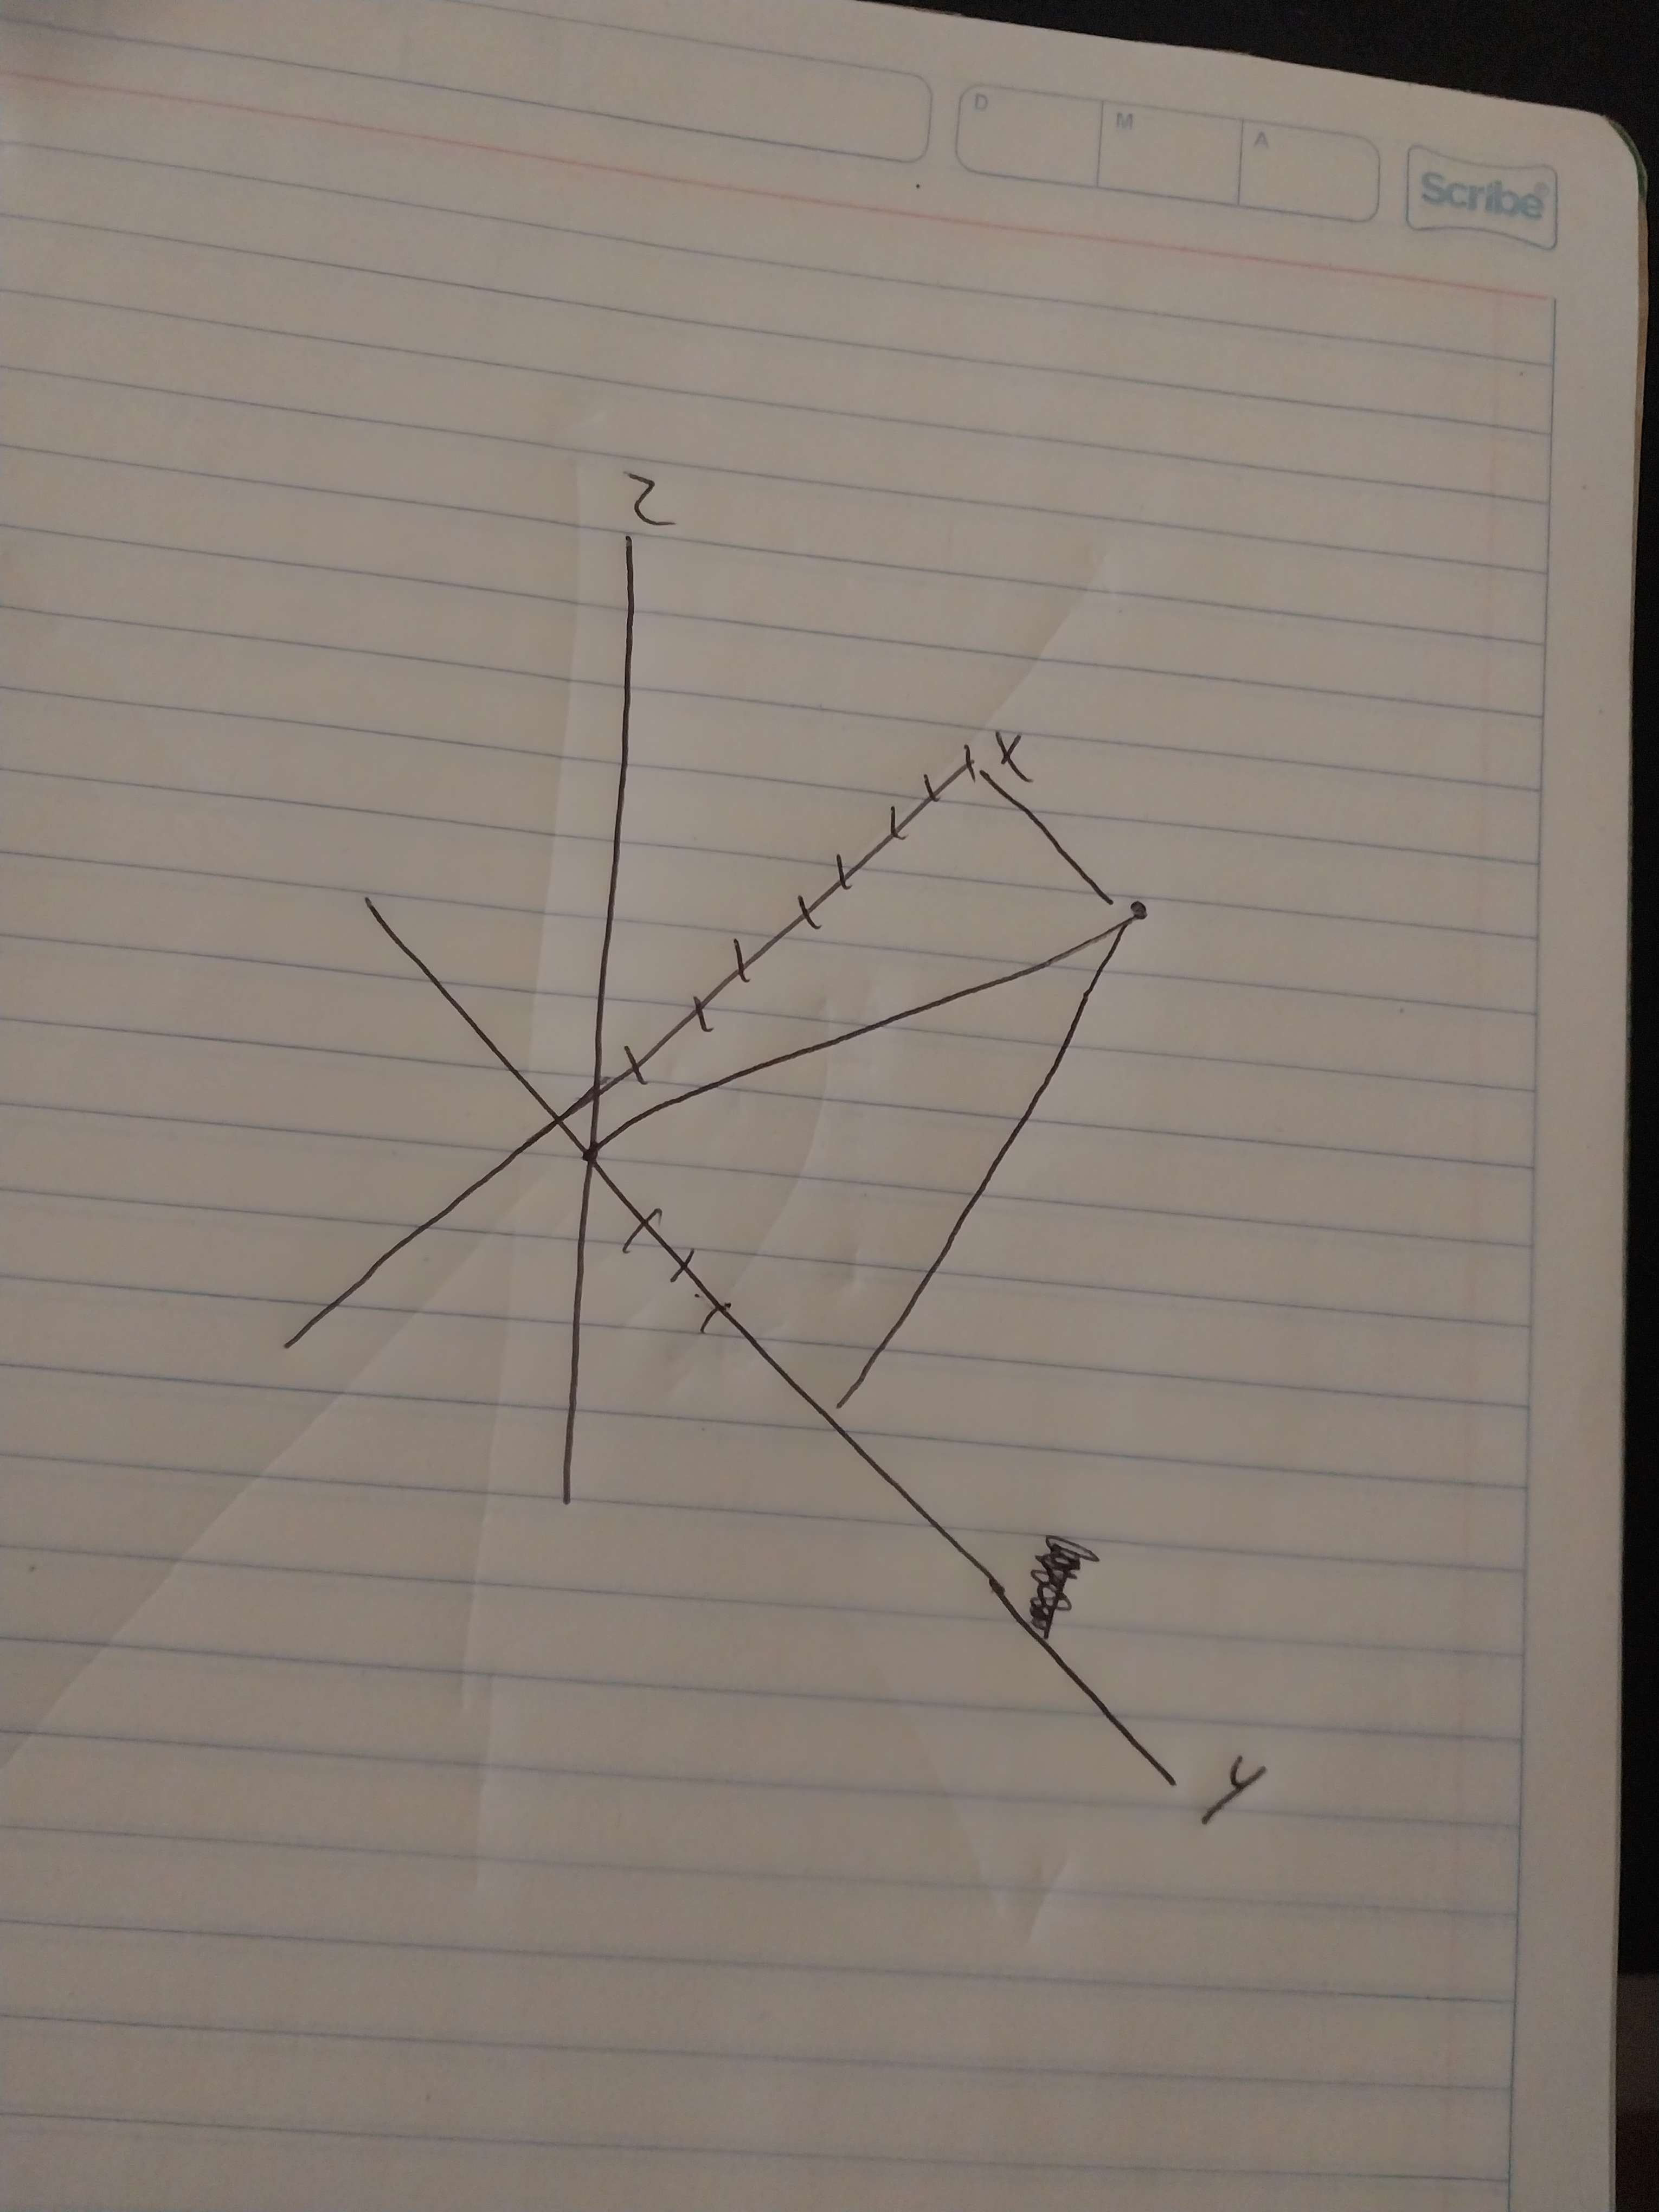 D M A
Scribe®
z
x
y